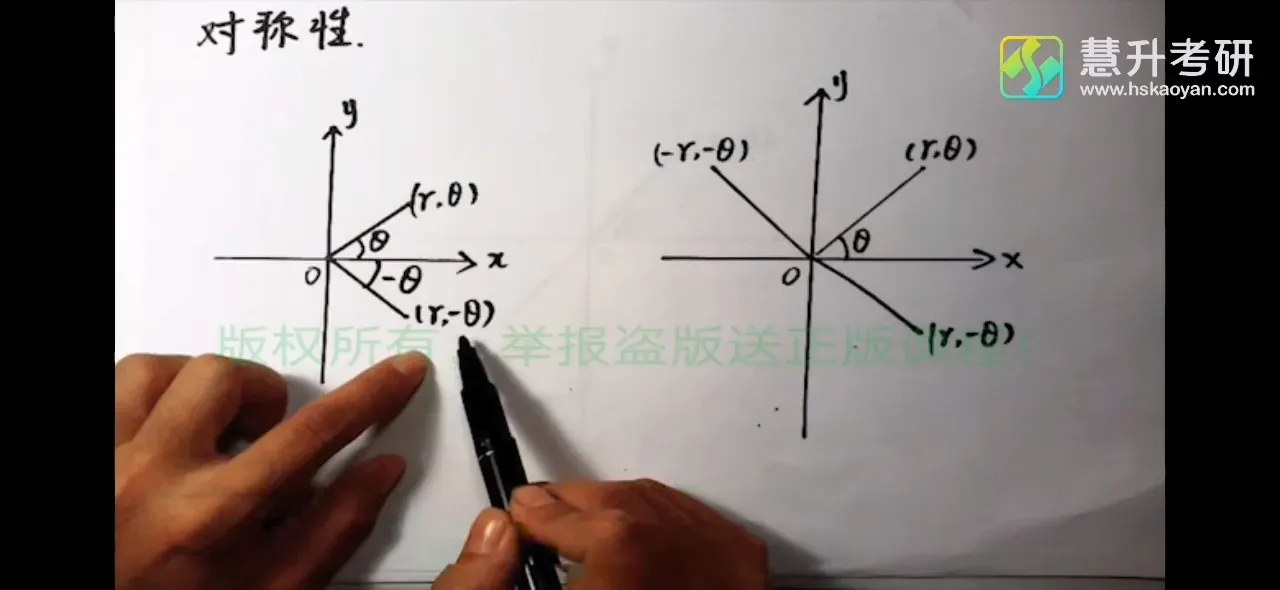 对称性.
慧升考研
www.hskaoyan.com
y
(r,θ)
θ
x
O
-θ
(r,-θ)
y
(-r,-θ)
(r,θ)
θ
x
O
(r,-θ)
版权所有,举报盗版送正版